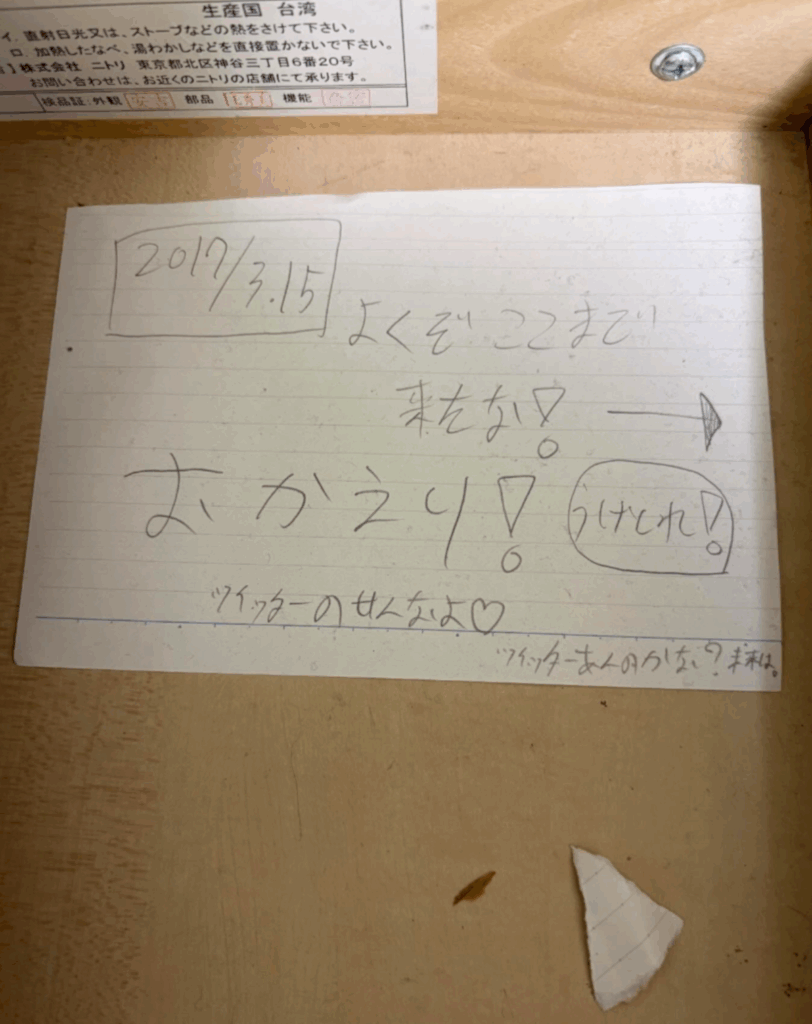 生産国 台湾
イ. 直射日光又は、ストーブなどの熱をさけて下さい。
ロ. 加熱したなべ、湯わかしなどを直接置かないで下さい。
】株式会社 ニトリ 東京都北区神谷三丁目6番20号
お問い合わせは、お近くのニトリの店舗にて承ります。
検品証:外観 部品 機能
2017/3.15
よくぞここまで
来たな! →
おかえり! うけとれ!
ツイッターのせんなよ♡
ツイッターあんのかな?未来は。